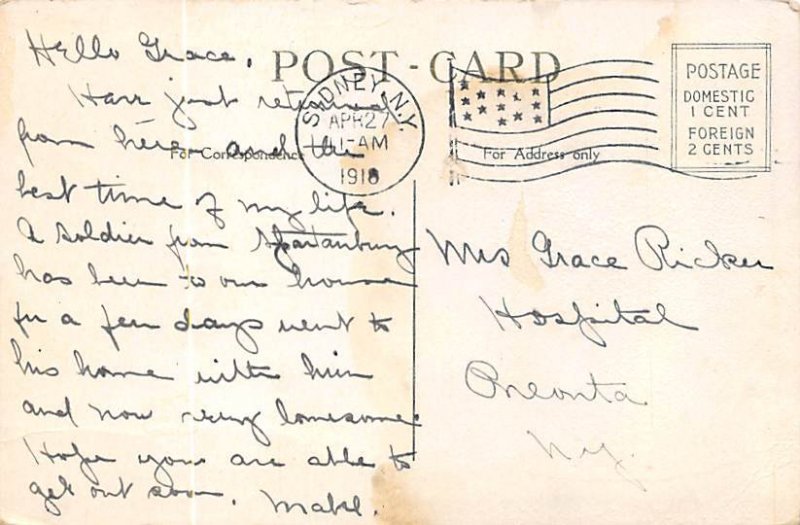 POST-CARD
Hello Grace,
Have just returned
from here and the
best time of my life.
A soldier from Spartanburg
has been to our house
for a few days went to
his home with him
and now very lonesome.
Hope you are able to
get out soon. Mabel.
For Correspondence
SIDNEY, N.Y.
APR 27
11-AM
1918
For Address only
POSTAGE
DOMESTIC
1 CENT
FOREIGN
2 CENTS
Mrs Grace Ricker
Hospital
Oneonta
N.Y.